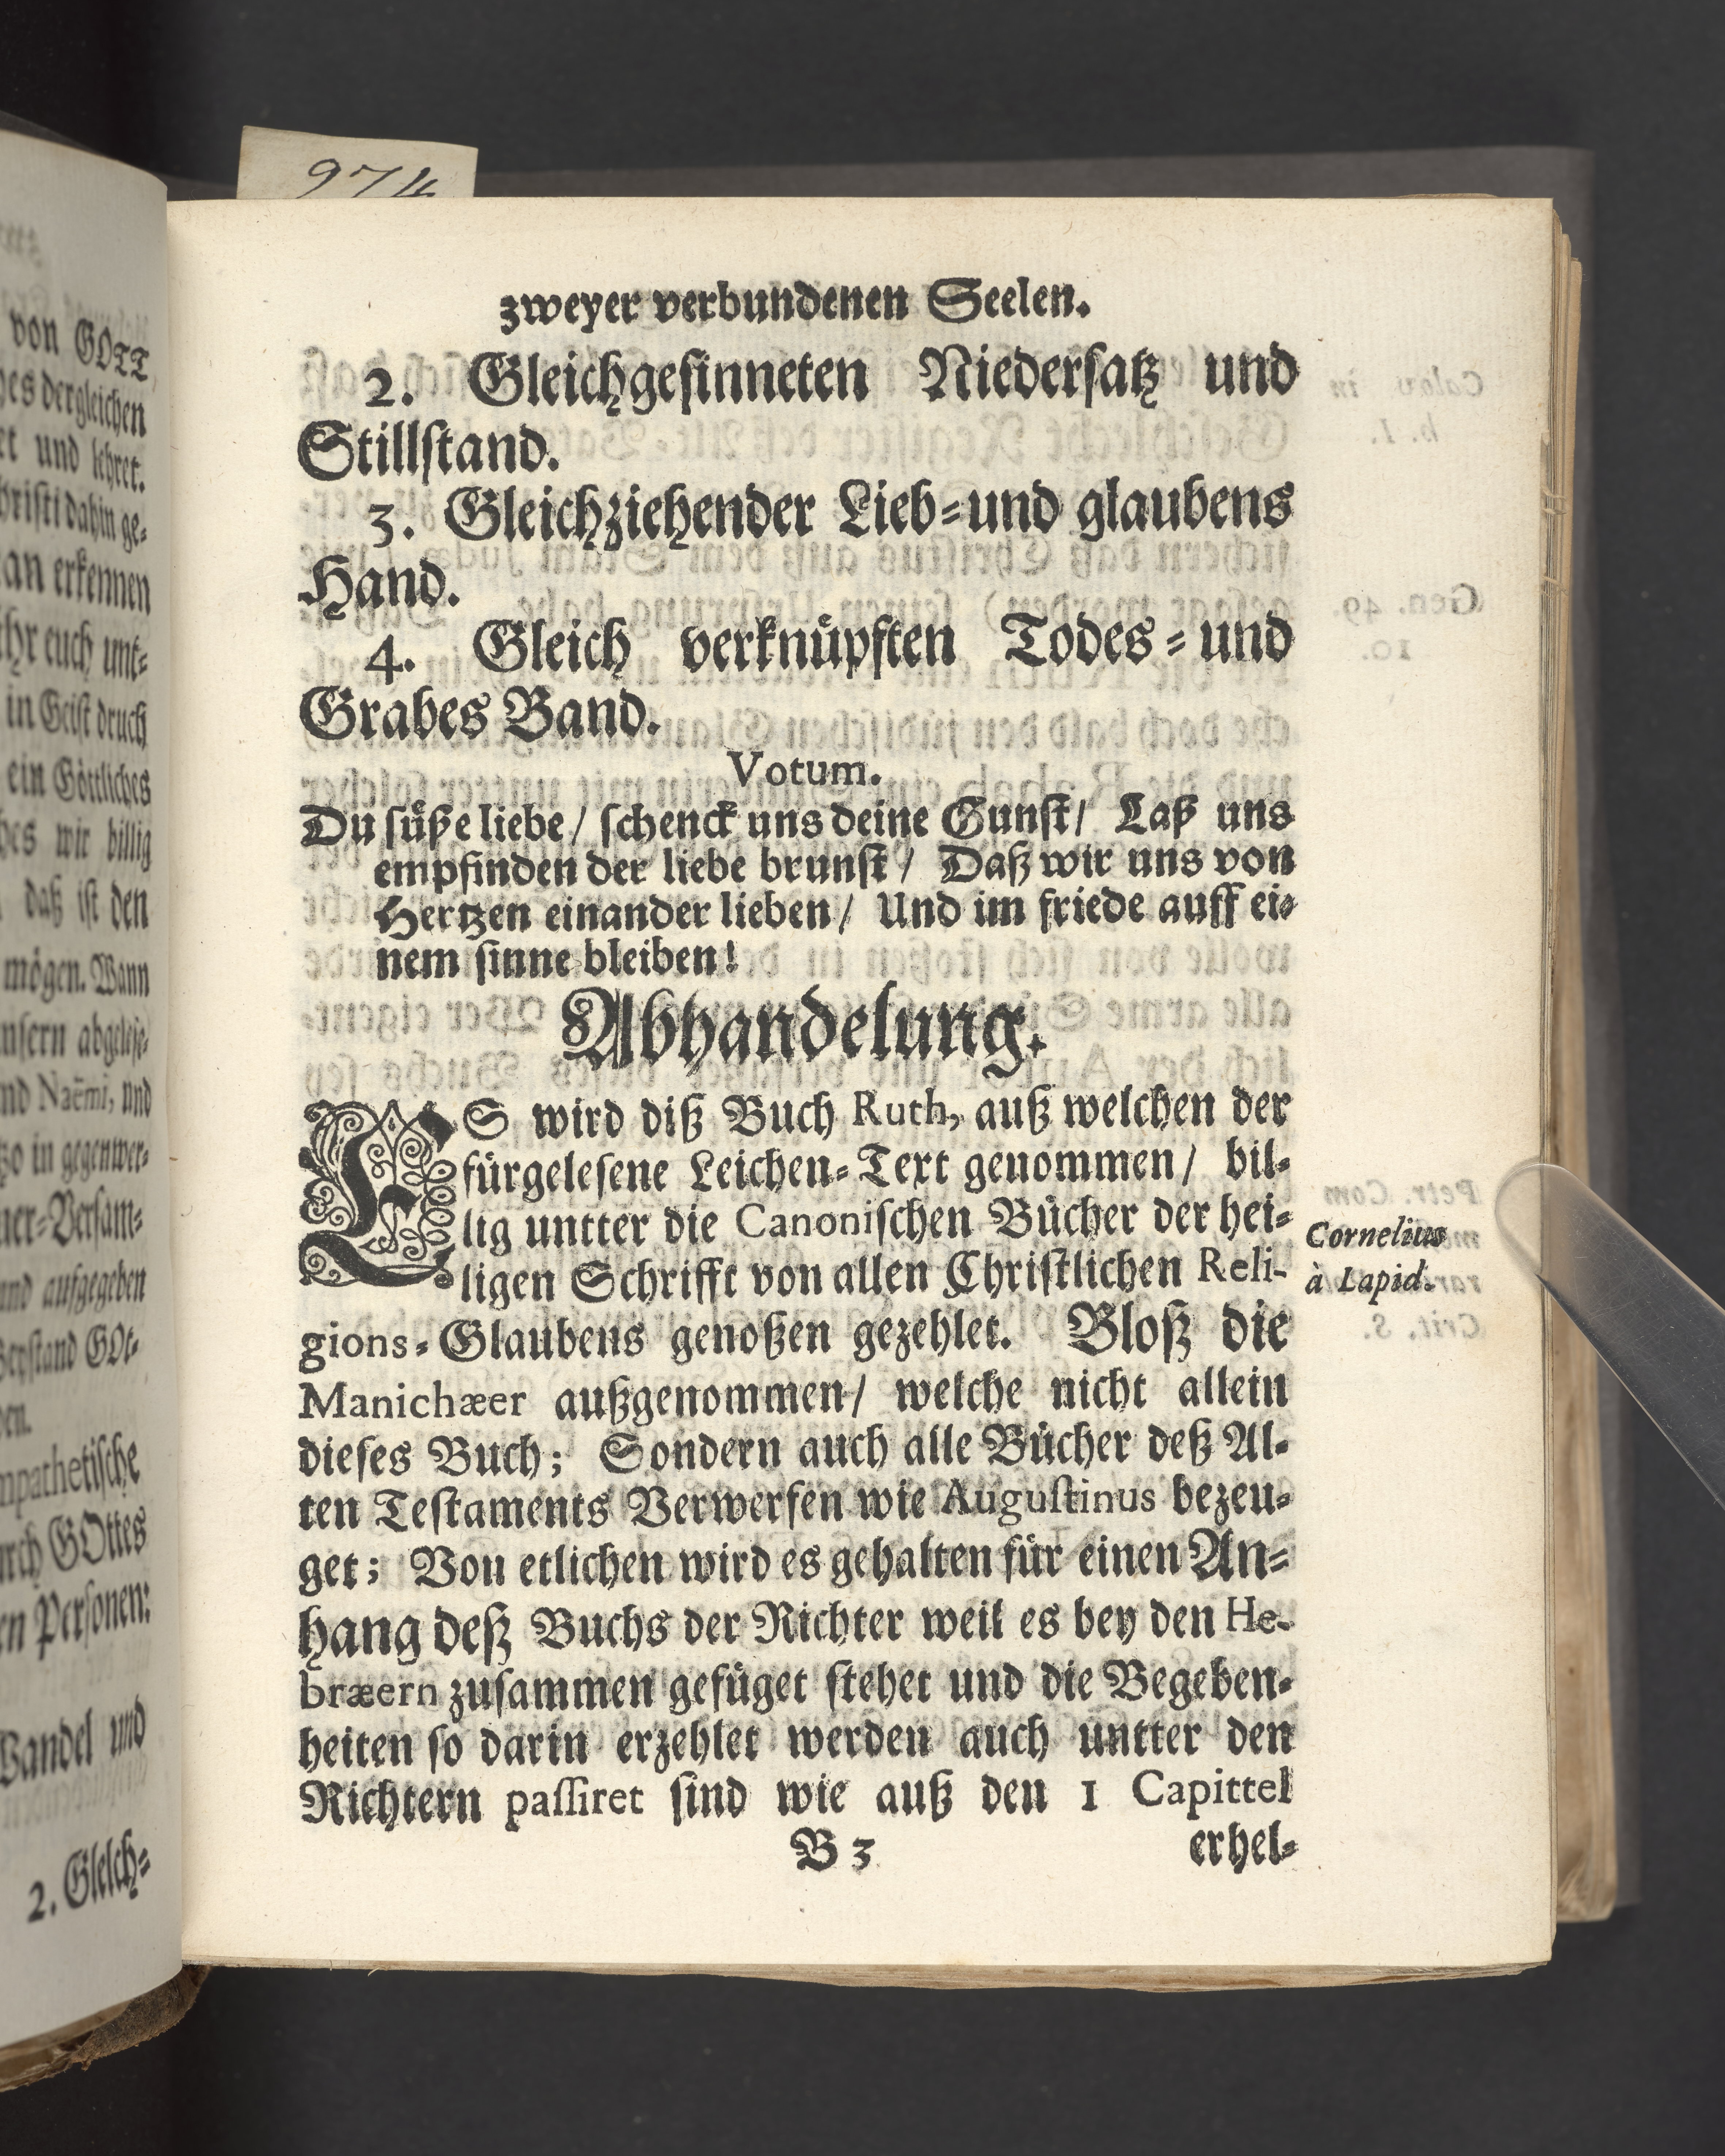 974
zweyer verbundenen Seelen.
2. Gleichgesinneten Niedersatz und
Stillstand.
3. Gleichziehender Lieb-und glaubens
Hand.
4. Gleich verknüpften Todes-und
Grabes Band.
Votum.
Du süße liebe/ schenck uns deine Gunst/ Laß uns
empfinden der liebe brunst/ Daß wir uns von
Hertzen einander lieben/ Und im friede auff ei-
nem sinne bleiben!
Abhandelung.
ES wird diß Buch Ruth, auß welchen der
fürgelesene Leichen-Text genommen/ bil-
lig untter die Canonischen Bücher der hei-
ligen Schrifft von allen Christlichen Reli-
gions-Glaubens genoßen gezehlet. Bloß die
Manichæer außgenommen/ welche nicht allein
dieses Buch; Sondern auch alle Bücher deß Al-
ten Testaments Verwerfen wie Augustinus bezeu-
get; Von etlichen wird es gehalten für einen An-
hang deß Buchs der Richter weil es bey den He-
bræern zusammen gefüget stehet und die Begeben-
heiten so darin erzehlet werden auch untter den
Richtern passiret sind wie auß den 1 Capittel
B 3
erhel-
Cornelius
à Lapid.
von GOTT
es dergleichen
und lehret.
dahin ge-
erkennen
euch unt-
in Geist druch
ein Göttliches
wir billig
daß ist den
mögen. Wann
Naëmi, und
in gegenwer-
und aufgegeben
GOt-
GOttes
Personen:
und
2. Gleich-